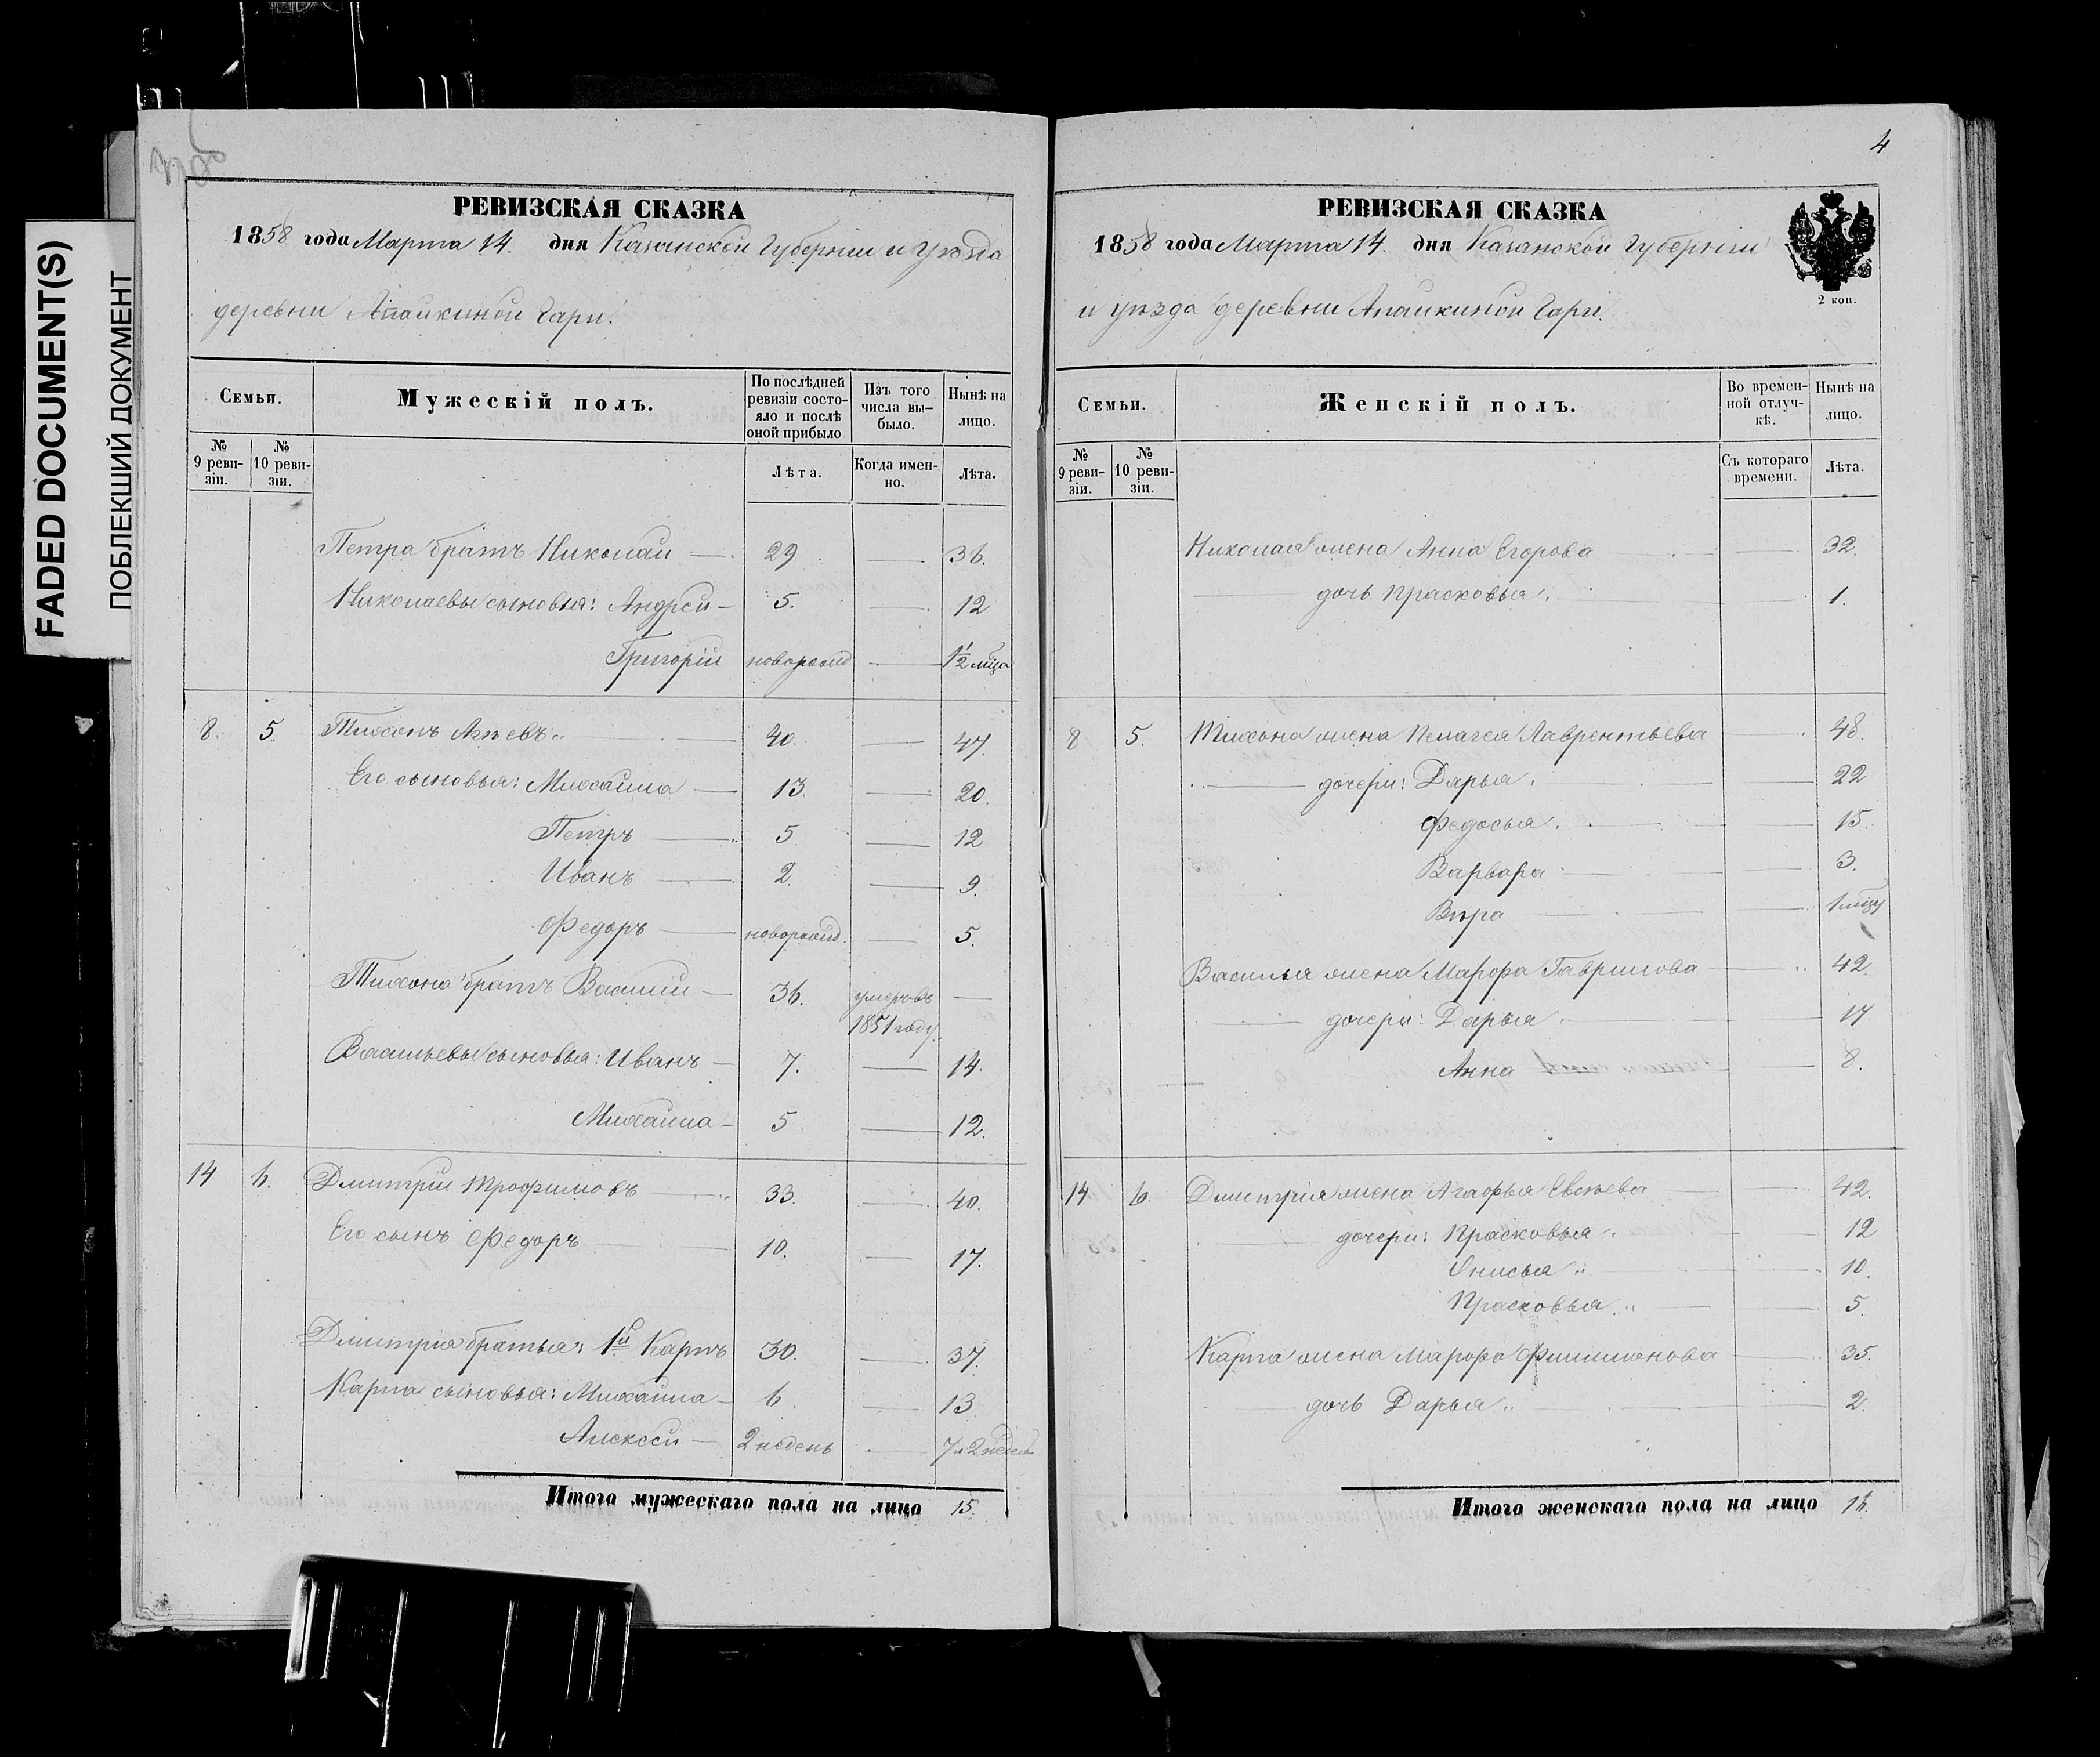 FADED DOCUMENT(S)
ПОБЛЕКШИЙ ДОКУМЕНТ
РЕВИЗСКАЯ СКАЗКА
1858 года Марта 14. дня Казанской Губернии и Уѣзда
деревни Апайкиной Гари.
Семьи.
Мужескій полъ.
По послѣдней ревизіи состояло и послѣ оной прибыло
Изъ того числа выбыло.
Нынѣ на лицо.
№ 9 ревизіи.
№ 10 ревизіи.
Лѣта.
Когда именно.
Лѣта.
Петра братъ Николай — 29 — 36.
Николаевы сыновья: Андрей — 5. — 12
Григорій новорожд — 1½ мѣца
8. 5. Тихонъ Агѣевъ 40. — 47.
Его сыновья: Михайла — 13. — 20.
Петръ — 5 — 12
Иванъ — 2. — 9.
Федоръ — новорожд. — 5.
Тихона братъ Василій — 36. умеръ въ —
1851 году
Васильевы сыновья: Иванъ — 7. — 14.
Михайла — 5 — 12.
14 6. Дмитрій Трофимовъ — 33. — 40.
Его сынъ Федоръ — 10. — 17.
Дмитрія братья: 1й Карпъ 30. — 37.
Карпа сыновья: Михайла — 6 — 13
Алексей — 2 недель — 7 и 2 недел
Итого мужескаго пола на лицо 15.
4
РЕВИЗСКАЯ СКАЗКА
1858 года Марта 14. дня Казанской Губерніи
и уѣзда деревни Апайкиной Гари.
2 коп.
Семьи.
Женскій полъ.
Во временной отлучкѣ.
Нынѣ на лицо.
№ 9 ревизіи.
№ 10 ревизіи.
Съ котораго времени.
Лѣта.
Николая жена Анна Егорова — 32.
дочь Прасковья. — 1.
8 5. Тихона жена Пелагея Лаврентьева — 48.
дочери: Дарья. — 22
Федосья. — 15.
Варвара — 3.
Вѣра — 1 мѣцу
Василья жена Марфа Гаврилова — 42.
дочери: Дарья. — 17
Анна — 8.
14 6. Дмитрія жена Агафья — 42.
дочери: Прасковья — 12
Анисья — 10.
Прасковья — 5.
Карпа жена Марфа Филимонова — 35.
дочь Дарья — 2.
Итого женскаго пола на лицо 16.